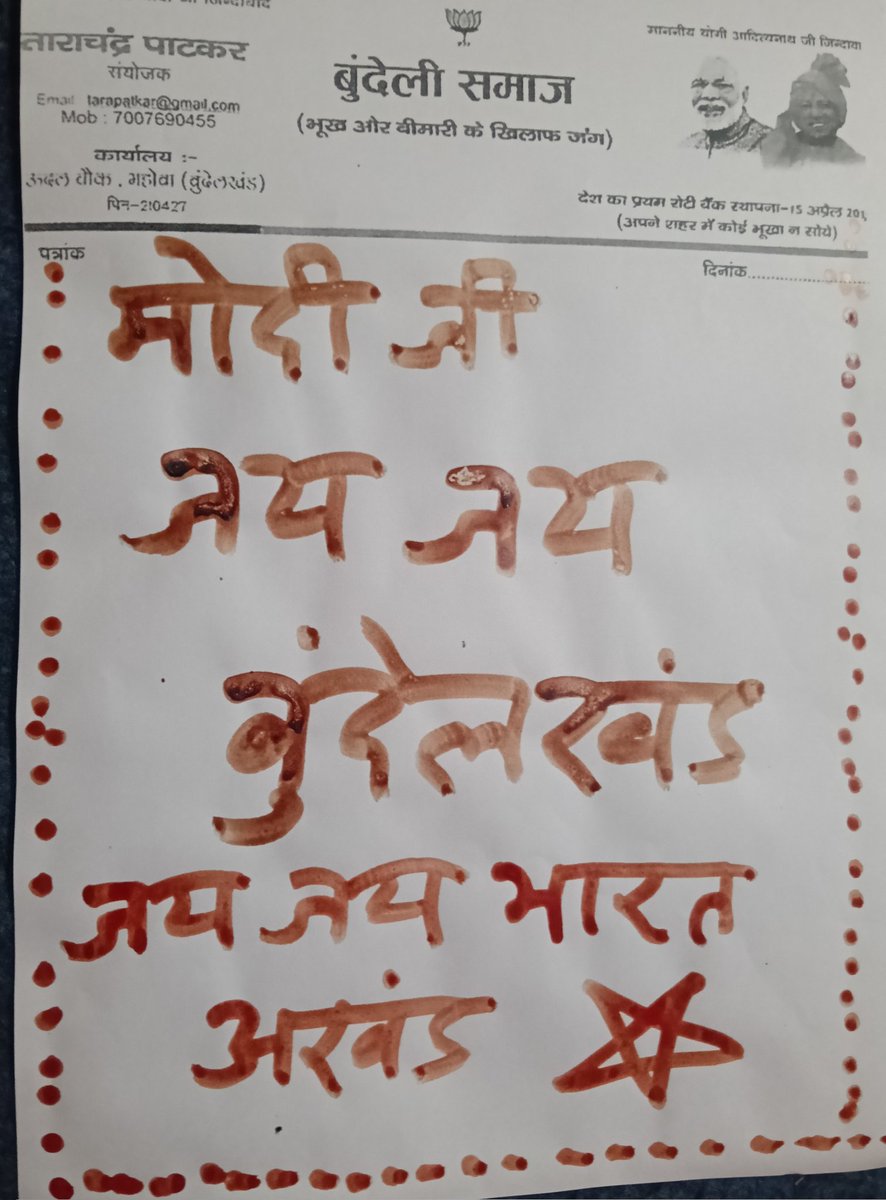 माननीय योगी आदित्यनाथ जी जिन्दावा
ताराचंद्र पाटकर
संयोजक
Email tarapatkar@gmail.com
Mob : 7007690455
बुंदेली समाज
(भूख और बीमारी के खिलाफ जंग)
कार्यालय :-
ऊदल चौक , महोवा (बुंदेलखंड)
पिन-210427
देश का प्रथम रोटी बैंक स्थापना-15 अप्रैल 201
(अपने शहर में कोई भूखा न सोये)
पत्रांक
दिनांक......................
मोदी जी
जय जय
बुंदेलखंड
जय जय भारत
अखंड